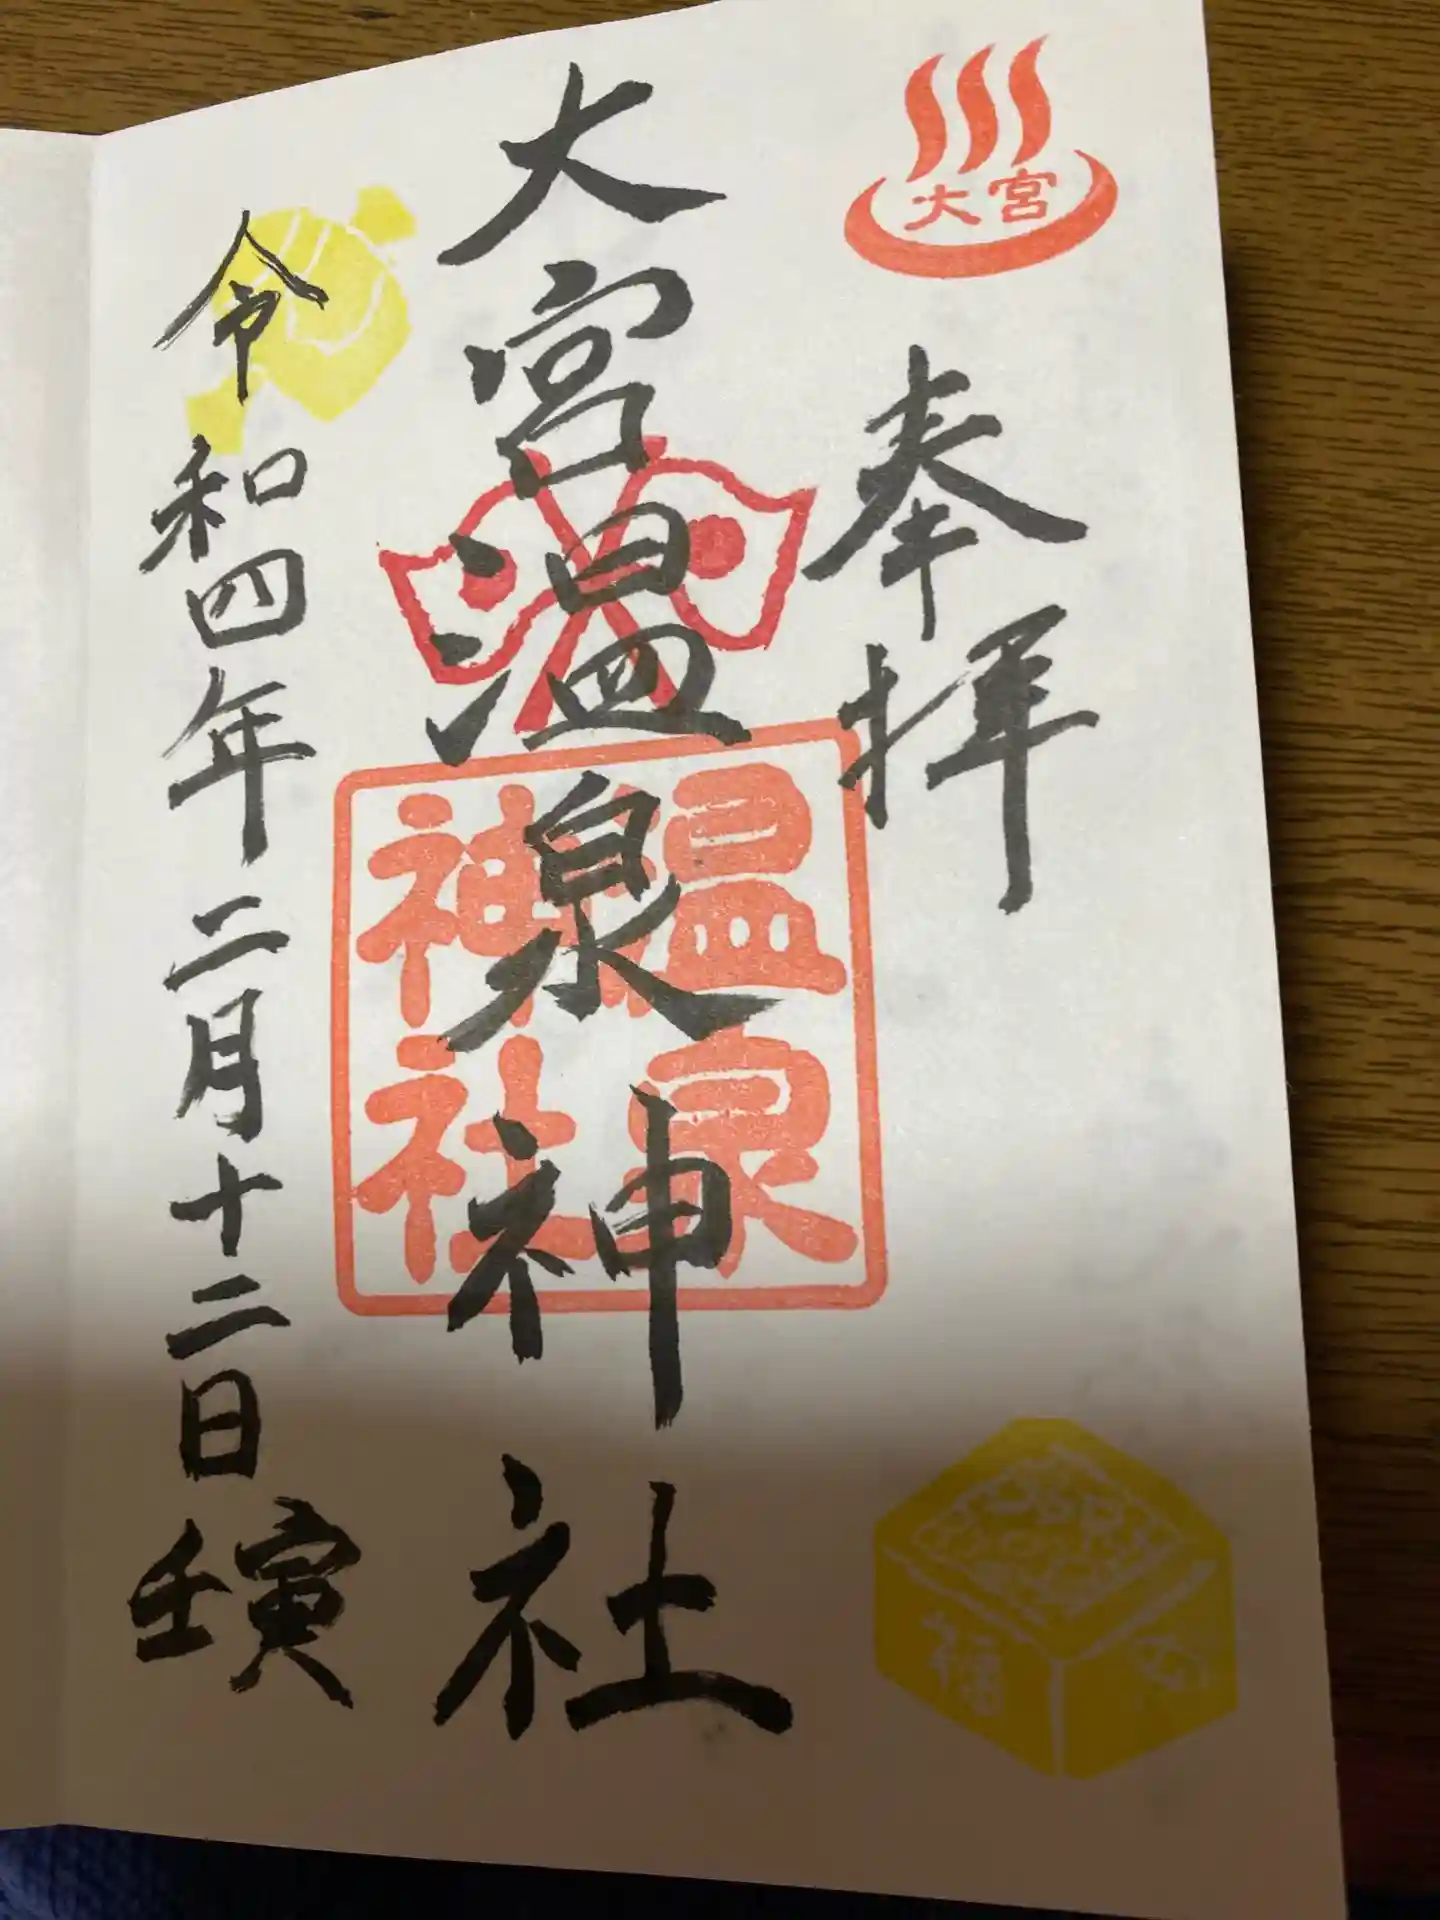 大宮
奉拝
大宮温泉神社
温泉
神社
令和四年二月十二日
壬寅
福